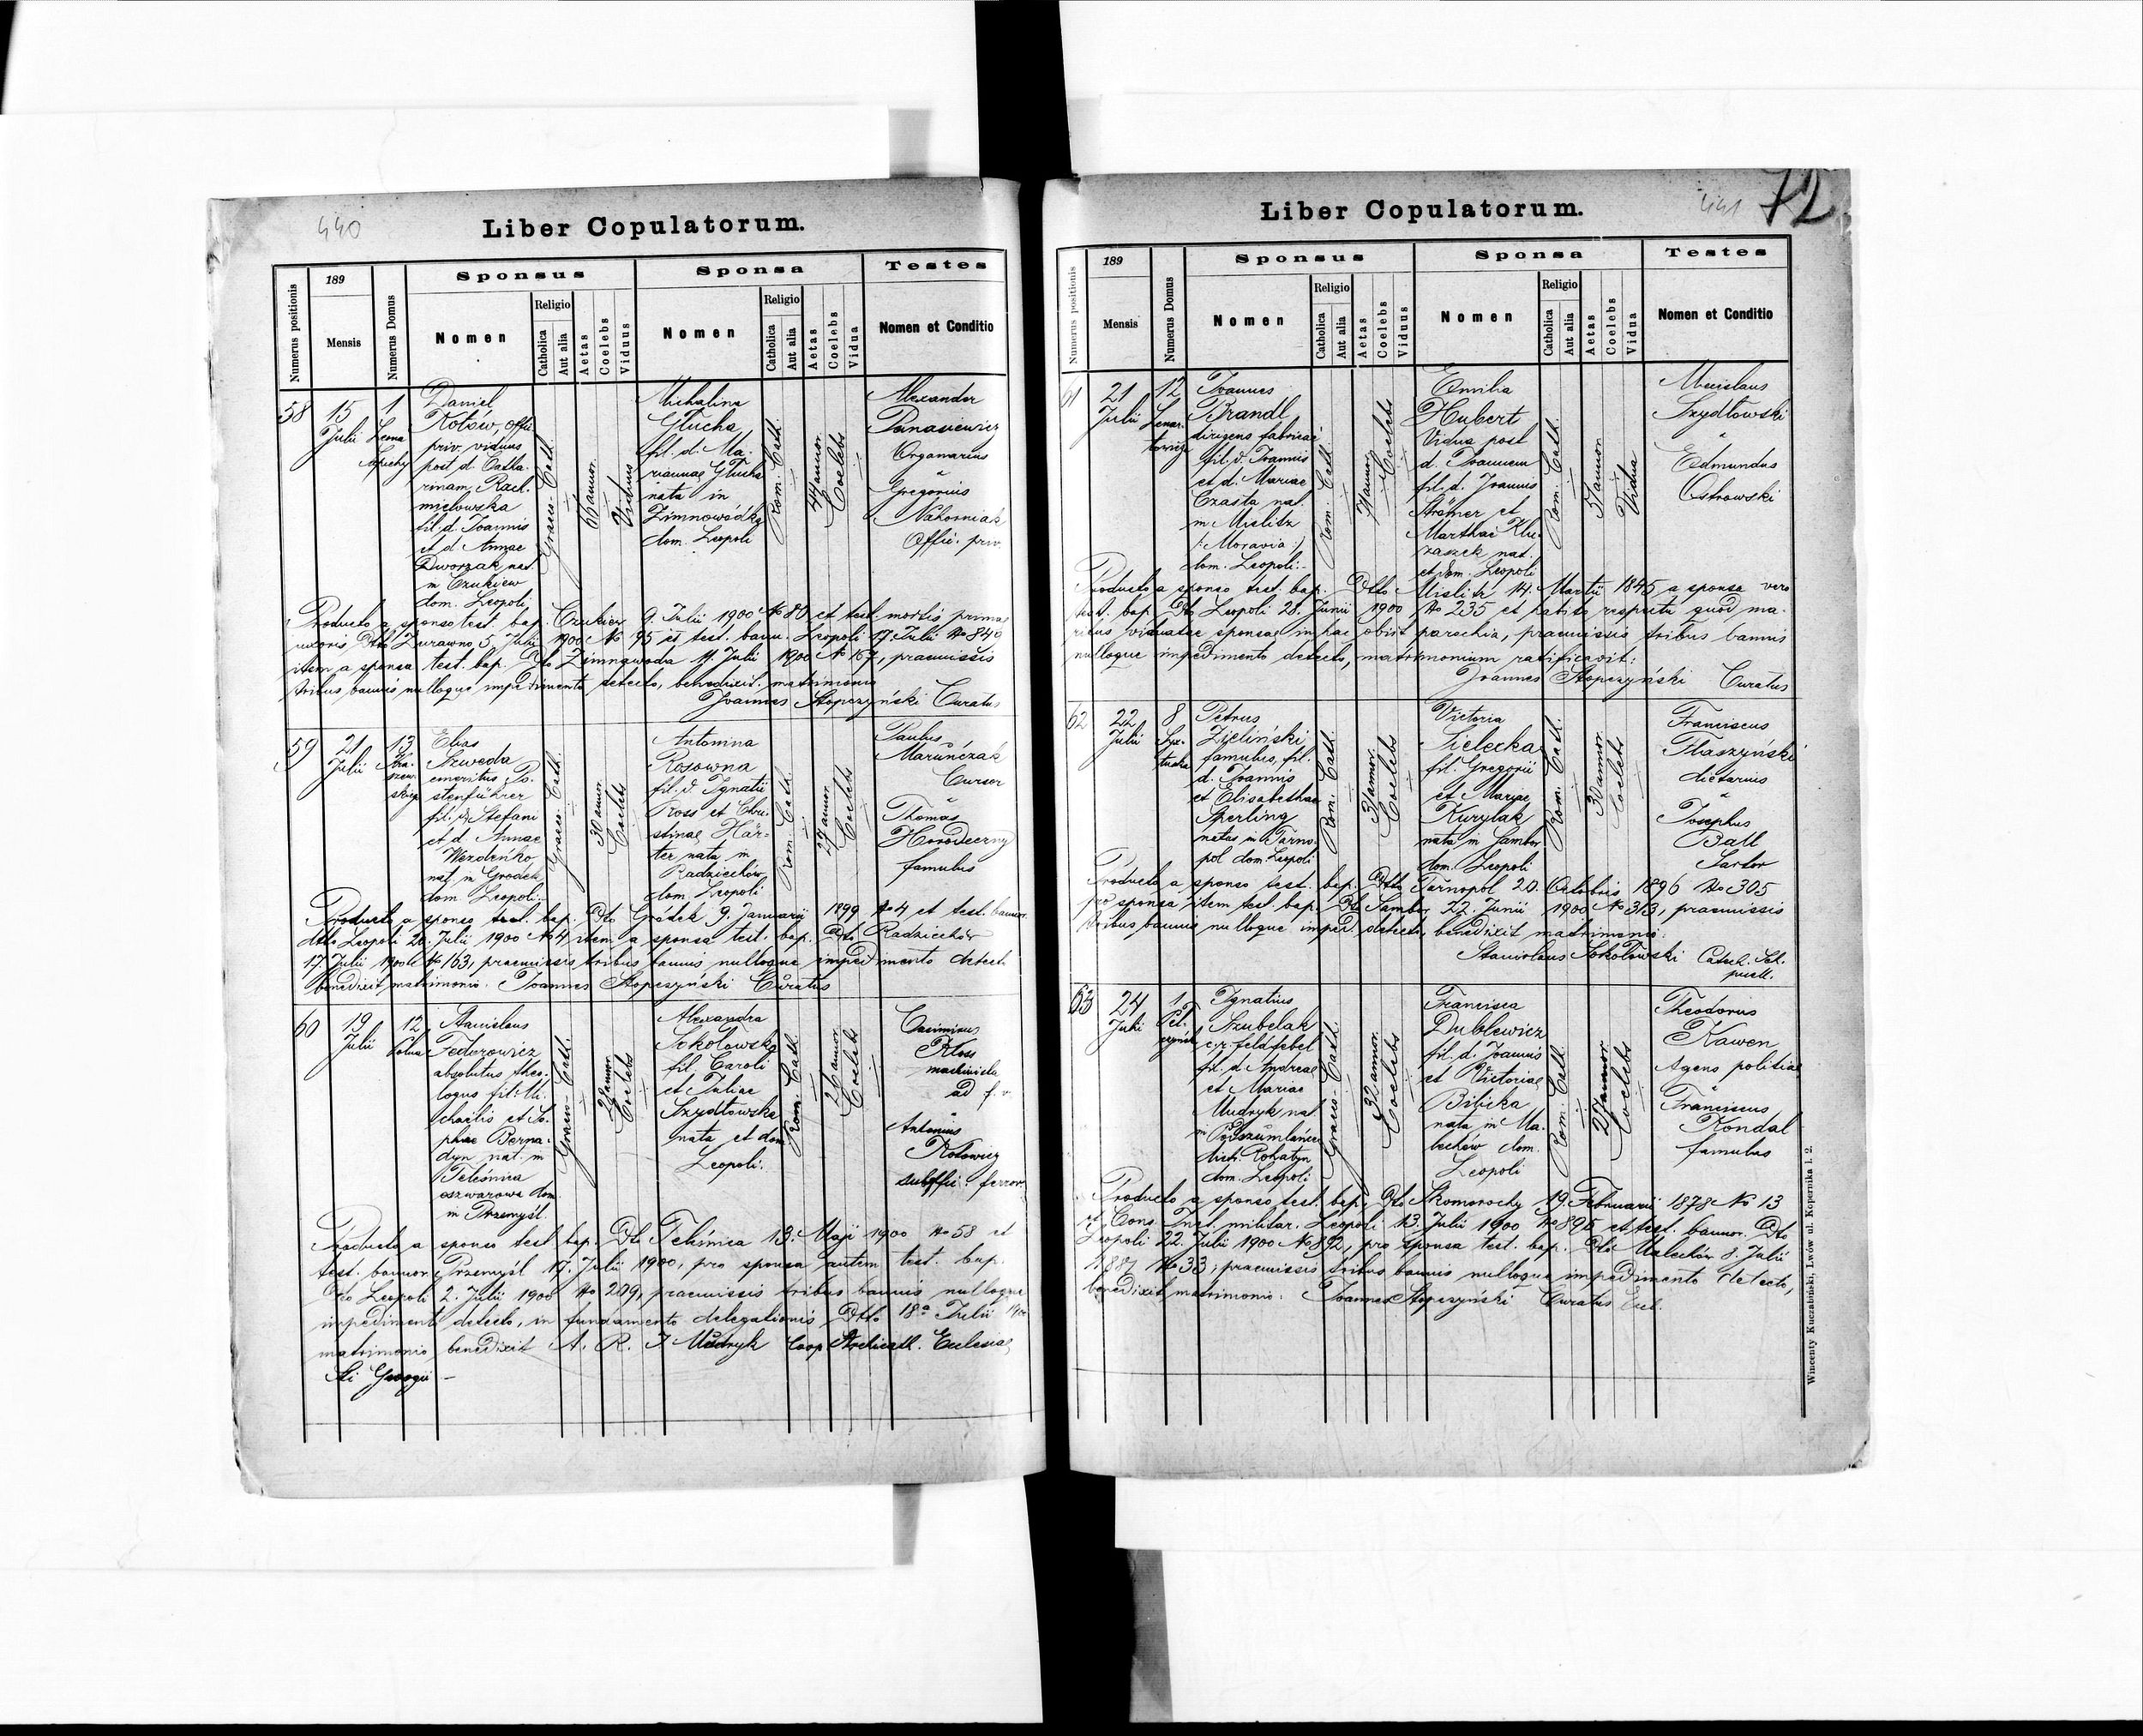 440
Liber Copulatorum.
Numerus positionis
189
Mensis
Numerus Domus
Sponsus
Nomen
Religio
Catholica
Aut alia
Aetas
Coelebs
Viduus
Sponsa
Nomen
Religio
Catholica
Aut alia
Aetas
Coelebs
Vidua
Testes
Nomen et Conditio
58
15
Julii
1
Daniel
Kotów, offi
priv. viduus
post d. Catha
rinam Rach
mielowska
fil. d. Joannis
et d. Annae
Dworzak nat.
in Czukiew
dom. Leopoli
Graeco Cath.
66 annor.
Viduus
Michalina
Głucha
fil. d. Ma-
riannae Głucha
nata in
Zimnowódka
dom. Leopoli
Rom. Cath.
44 annor.
Coelebs
Alexander
Panasiewicz
Organarius
Gregorius
Nahorniak
Offic. priv.
Producto a sponso test. bap. Czukiew 9. Julii 1900 No 80 et test. mortis primae
uxoris Dto Żurawno 5. Julii 1900 No 95 et test. bann. Leopoli 17. Julii No 840
item a sponsa test. bap. Dto Zimnawoda 11. Julii 1900 No 167, praemissis
tribus bannis nulloque impedimento detecto, benedixit matrimonio
Joannes Stopczyński Curatus
59
21
Julii
13
Elias
Szweda
emeritus Po-
stenführer
fil. d. Stefani
et d. Annae
nat. in Gródek
dom. Leopoli
Graeco Cath.
30 annor.
Coelebs
Antonina
Rosówna
fil. d. Ignatii
Ross et Chri-
stinae Här-
ter nata in
Radziechów
dom. Leopoli
Rom. Cath.
27 annor.
Coelebs
Paulus
Maruńczak
Cursor
Thomas
Horodeczny
famulus
Producto a sponso test. bap. Dto Gródek 9. Januarii 1899 No 4 et test. bannor.
dtto Leopoli 20. Julii 1900 No 4 item a sponsa test. bap. Dto Radziechów
17. Julii 1900 No 163, praemissis tribus bannis nulloque impedimento detect.
benedixit matrimonio. Joannes Stopczyński Curatus
60
19
Julii
12
Polna
Stanislaus
Fedorowicz
absolutus theo-
logus fil. Mi-
chaelis et So-
phiae Berna-
dyn nat. in
Teleśnica
oszwarowa dom.
in Przemyśl
Graeco-Cath.
Coelebs
Alexandra
Sokołowska
fil. Caroli
et Juliae
Szydłowska
nata et dom
Leopoli.
Rom. Cath.
Coelebs
Casimirus
Kloss
machinista
ad f. v.
Antonius
Kotowicz
suboffic. ferrov.
Producto a sponso test. bap. Dto Teleśnica 13. Maji 1900 No 58 et
test. bannor. Przemyśl 17. Julii 1900, pro sponsa autem test. bap.
Dto Leopoli 2. Julii 1900 No 209, praemissis tribus bannis nulloque
impediment detecto, in fundamento delegationis Dtto 18a Julii 1900
matrimonio benedixit A. R. J. Mudryk Coop Archicath. Ecclesiae
Sti Georgii -
441
72
Liber Copulatorum.
Numerus positionis
189
Mensis
Numerus Domus
Sponsus
Nomen
Religio
Catholica
Aut alia
Aetas
Coelebs
Viduus
Sponsa
Nomen
Religio
Catholica
Aut alia
Aetas
Coelebs
Vidua
Testes
Nomen et Conditio
61
21
Julii
12
Joannes
Brandl
dirigens fabricae
fil. d. Joannis
et d. Mariae
Czasta nat.
in Mislitz
(: Moravia :)
dom. Leopoli.
Rom. Cath.
Coelebs
Emilia
Hubert
Vidua post
d. Joannem
fil. d. Joannis
Strömer et
Marthae Klu-
zaszek nat.
et dom. Leopoli
Rom. Cath.
51 annor
Vidua
Miecislaus
Szydłowski
Edmundus
Ostrowski
Producto a sponso test. bap. Dtto Mislitz 14. Martii 1845 a sponsa vero
test. bap. Dto Leopoli 28. Junii 1900 No 235 et habito respectu quod ma-
ritus viduatae sponsae in hac obiit parochia, praemissis tribus bannis
nulloque impedimento detecto, matrimonium ratificavit:
Joannes Stopczyński Curatus
62
22
Julii
8
Syx-
tuska
Petrus
Zieliński
famulus, fil.
d. Joannis
et Elisabethae
Sperling
natus in Tarno-
pol dom. Leopoli
Rom. Cath.
31 annor.
Coelebs
Victoria
Sielecka
fil. Gregorii
et Mariae
Kurylak
nata in Sambor
dom. Leopoli
Rom. Cath.
30 annor.
Coelebs
Franciscus
Flaszyński
dietarius
Josephus
Ball
Sartor
Producto a sponso test. bap. Dtto Tarnopol 20. Octobris 1896 No 305
pro sponsa item test. bap. Dto Sambor 22. Junii 1900 No 313, praemissis
tribus bannis nulloque imped. detecto, benedixit matrimonio.
Stanislaus Sokołowski Catech. Sch.
puell.
63
24
Julii
1
Peł-
czyńsk
Ignatius
Szubelak
c. r. feldfebel
fil. d. Andreae
et Mariae
Mudryk nat.
distr. Rohatyn
dom. Leopoli
Graeco-Cath.
32 annor.
Coelebs
Francisca
Dublewicz
fil. d. Joannis
et Victoriae
Bilicka
nata in Ma-
lechów dom.
Leopoli
Rom. Cath.
27 annor
Coelebs
Theodorus
Kawen
Agens politiae
Franciscus
Kondal
famulus
Producto a sponso test. bap. Dto Skomorochy 19. Februarii 1878 No 13
et Cons. Inst. militar. Leopoli 13. Julii 1900 No 895 et test. bannor. Dto
Leopoli 22. Julii 1900 No 892, pro sponsa test. bap. Dto Malechów 8. Julii
1887 No 33, praemissis tribus bannis nulloque impedimento detecto,
benedixit matrimonio: Joannes Stopczyński Curatus Eccl.
Wincenty Kuczabiński, Lwów ul. Kopernika l. 2.